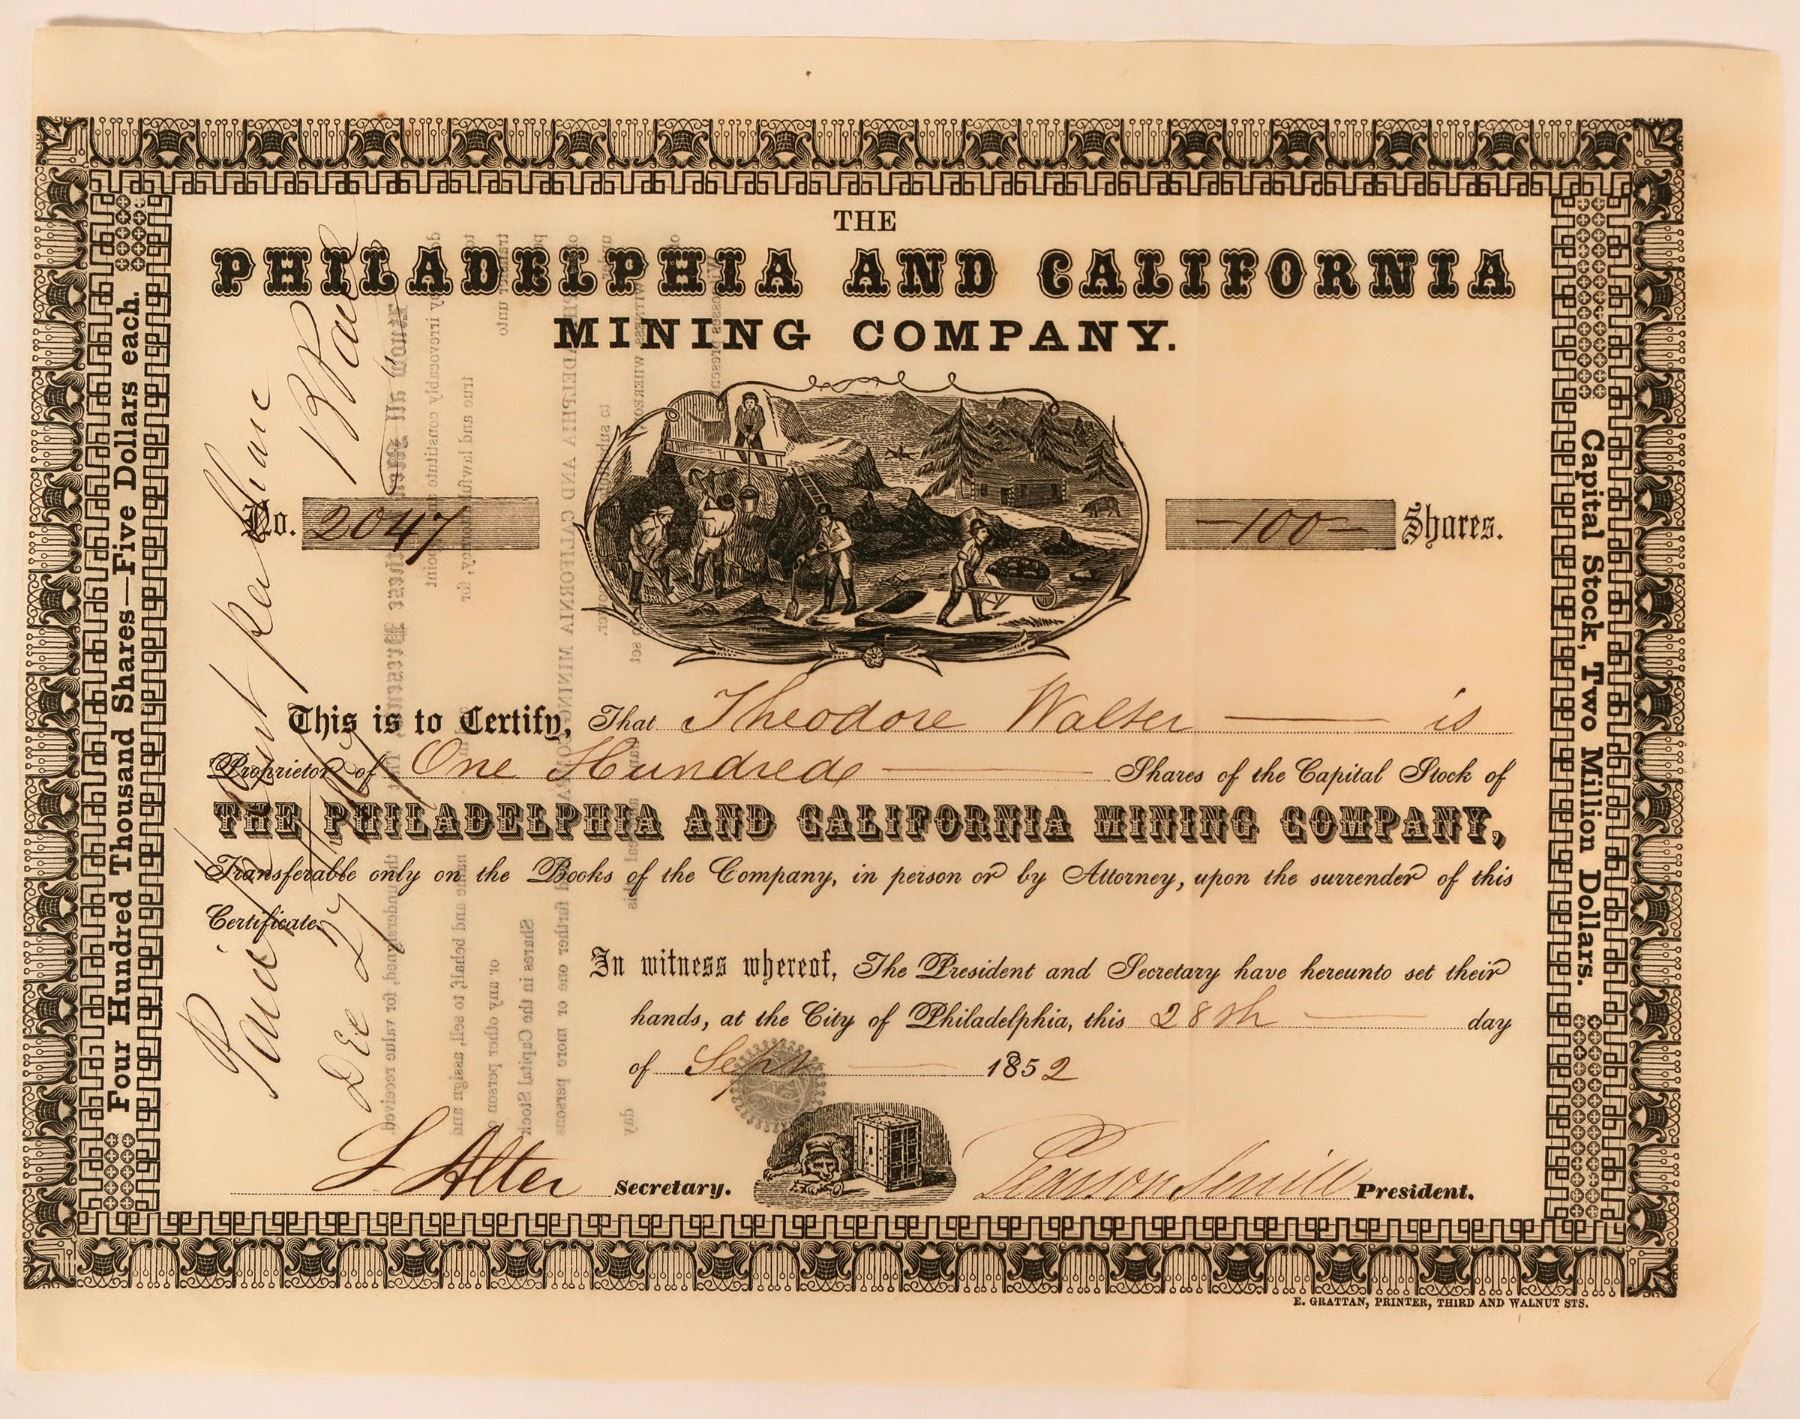 THE
PHILADELPHIA AND CALIFORNIA
MINING COMPANY.
No. 2047
100 Shares.
This is to Certify, That Theodore Walter is
Proprietor of One Hundred Shares of the Capital Stock of
THE PHILADELPHIA AND CALIFORNIA MINING COMPANY,
Transferable only on the Books of the Company, in person or by Attorney, upon the surrender of this
Certificate.
In witness whereof, The President and Secretary have hereunto set their
hands, at the City of Philadelphia, this 28th day
of Sept 1852
Alter Secretary.
Pearson President.
Four Hundred Thousand Shares—Five Dollars each.
Capital Stock, Two Million Dollars.
Paid 4 cent per Share
Dec 27
E. GRATTAN, PRINTER, THIRD AND WALNUT STS.